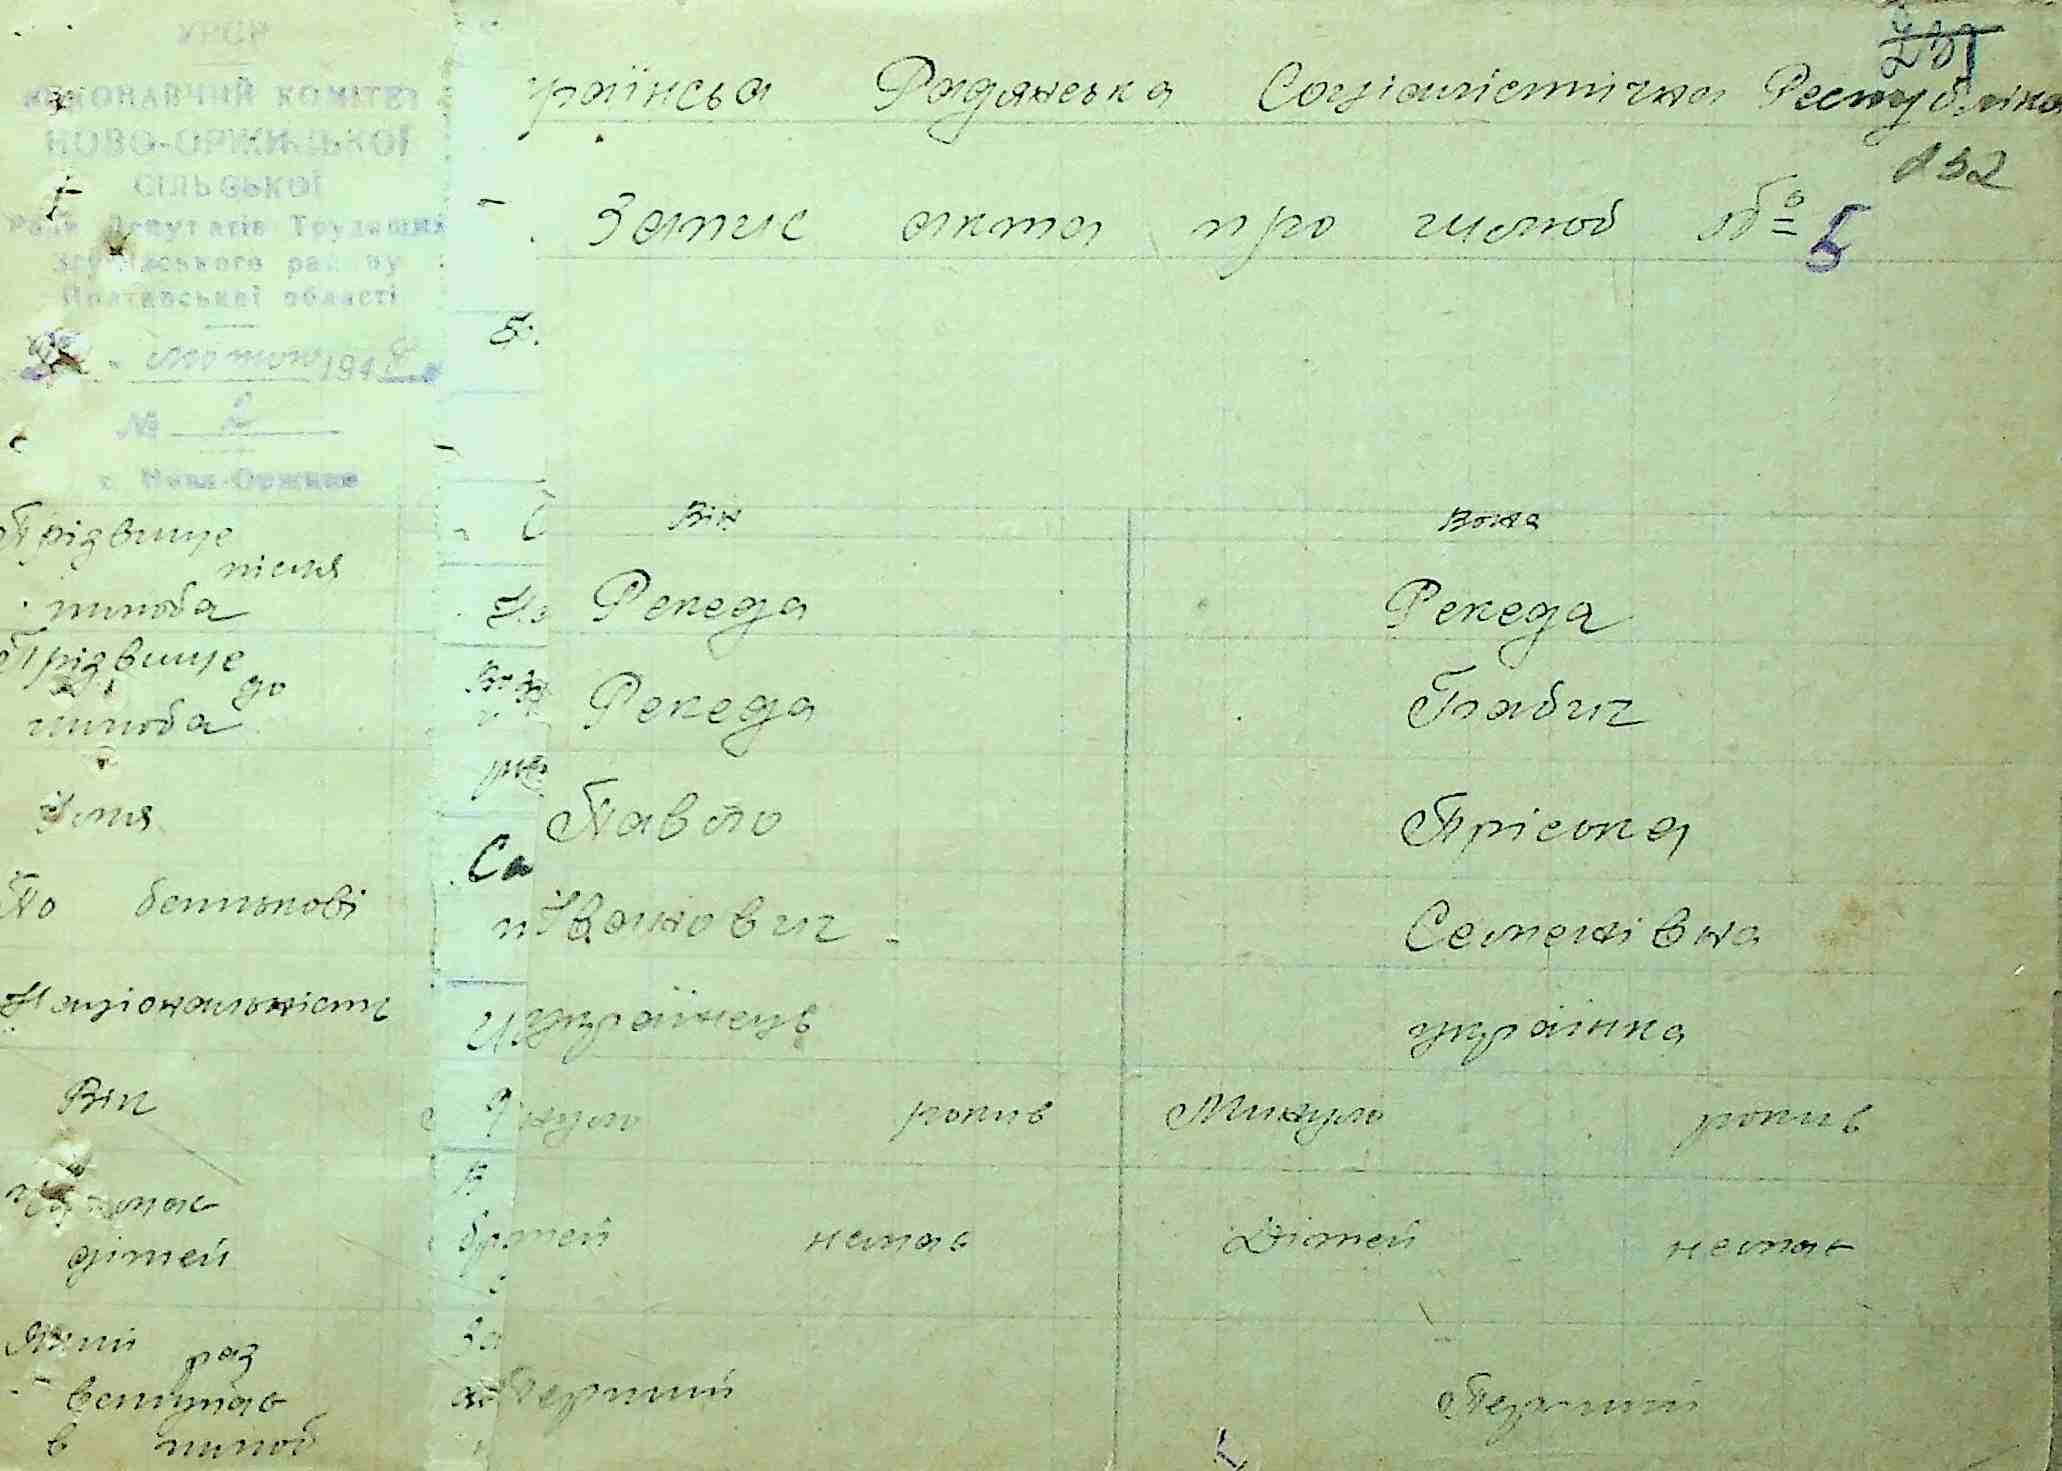 УРСР
ВИКОНАВЧИЙ КОМІТЕТ
НОВО-ОРЖИЦЬКОЇ
СІЛЬСЬКОЇ
Ради Депутатів Трудящих
Згурівського району
Полтавської області
194
№ 2
с. Нова-Оржиця
231
країнсьа Радянська Соціалістична Республіка
132
Запис акта про шлюб № 5
Він Вона
Прізвище після шлюба Рекеда Рекеда
Прізвище до шлюба Рекеда Грабич
Імя Павло Пріська
По батькові Іванович Семенівна
Національність українець українка
Вік нуло років Минуло років
має дітей немає Дітей немає
дітей
Який раз
вступає Перший Перший
в шлюб